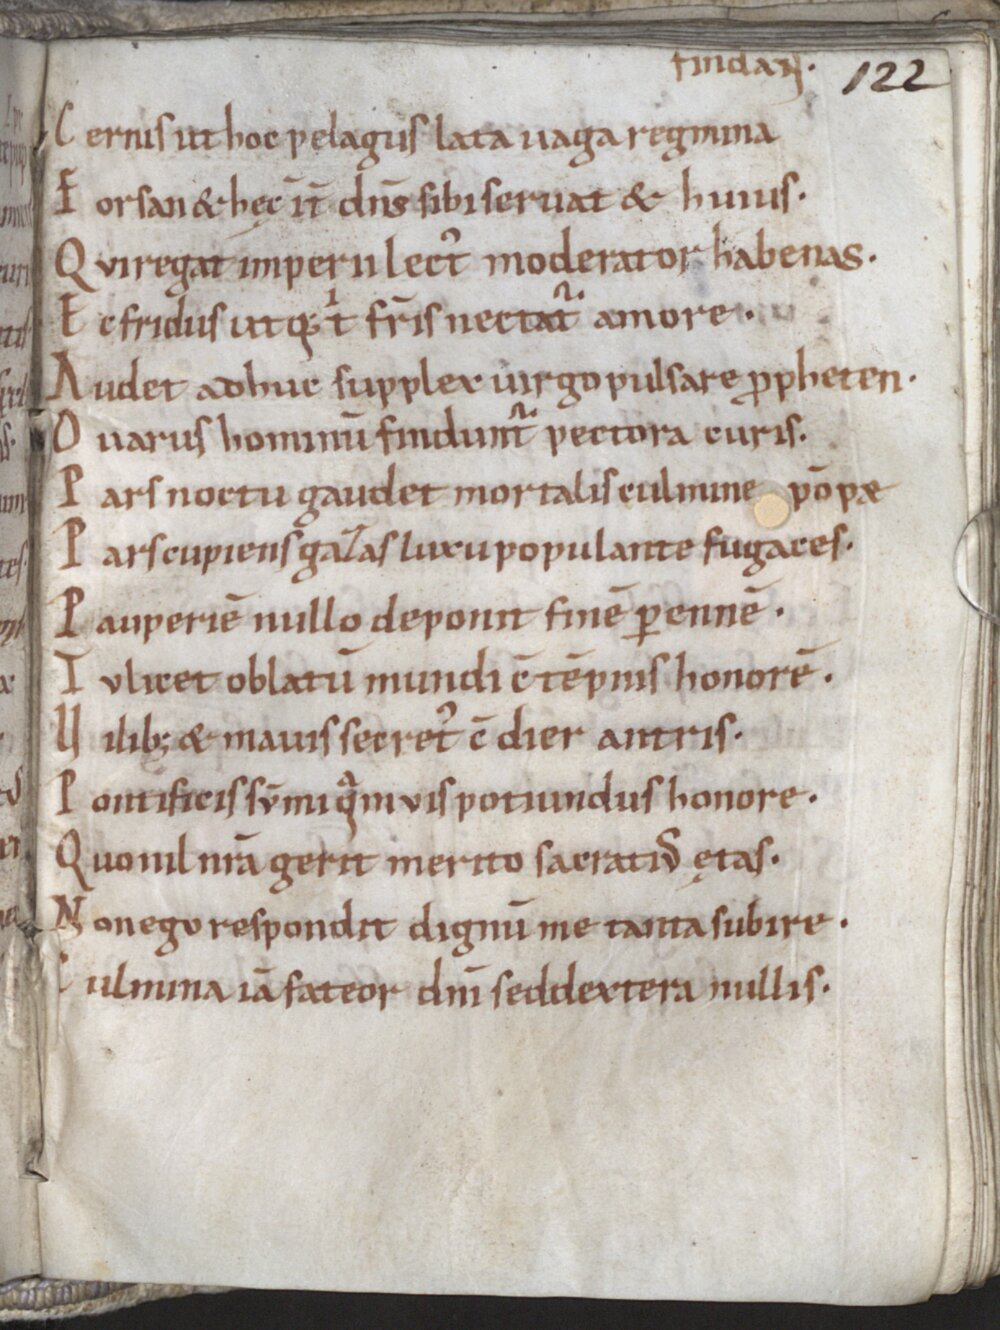 findan·
122
C ernis ut hoc pelagus lata uaga regmina
F orsan & hęc n̄ dn̄s sibi seruat & huius·
Q vi regat imperii lect᷒ moderator habenas·
E cfridus ut fr̄is nectat᷑ amore·
A udet adhuc supplex uirgo pulsare ꝓpheten·
O uarus hominū findunt᷑ pectora curis·
P ars noctu gaudet mortalis culmine pōpæ
P ars cupiens gazas luxu populante fugaces·
P auperiē nullo deponit finē ꝑennē·
T v licet oblatū mundi c̄tēpnis honorē·
V ilib; & mauis secret᷒ c̄dier antris·
P ontificis sūmi qͣm vis potiundus honore·
Q uo nil nr̄a gerit merito sacratiꝰ ętas·
N on ego respondit dignū me tanta subire·
C ulmina iā fateor dn̄i sed dextera nullis·